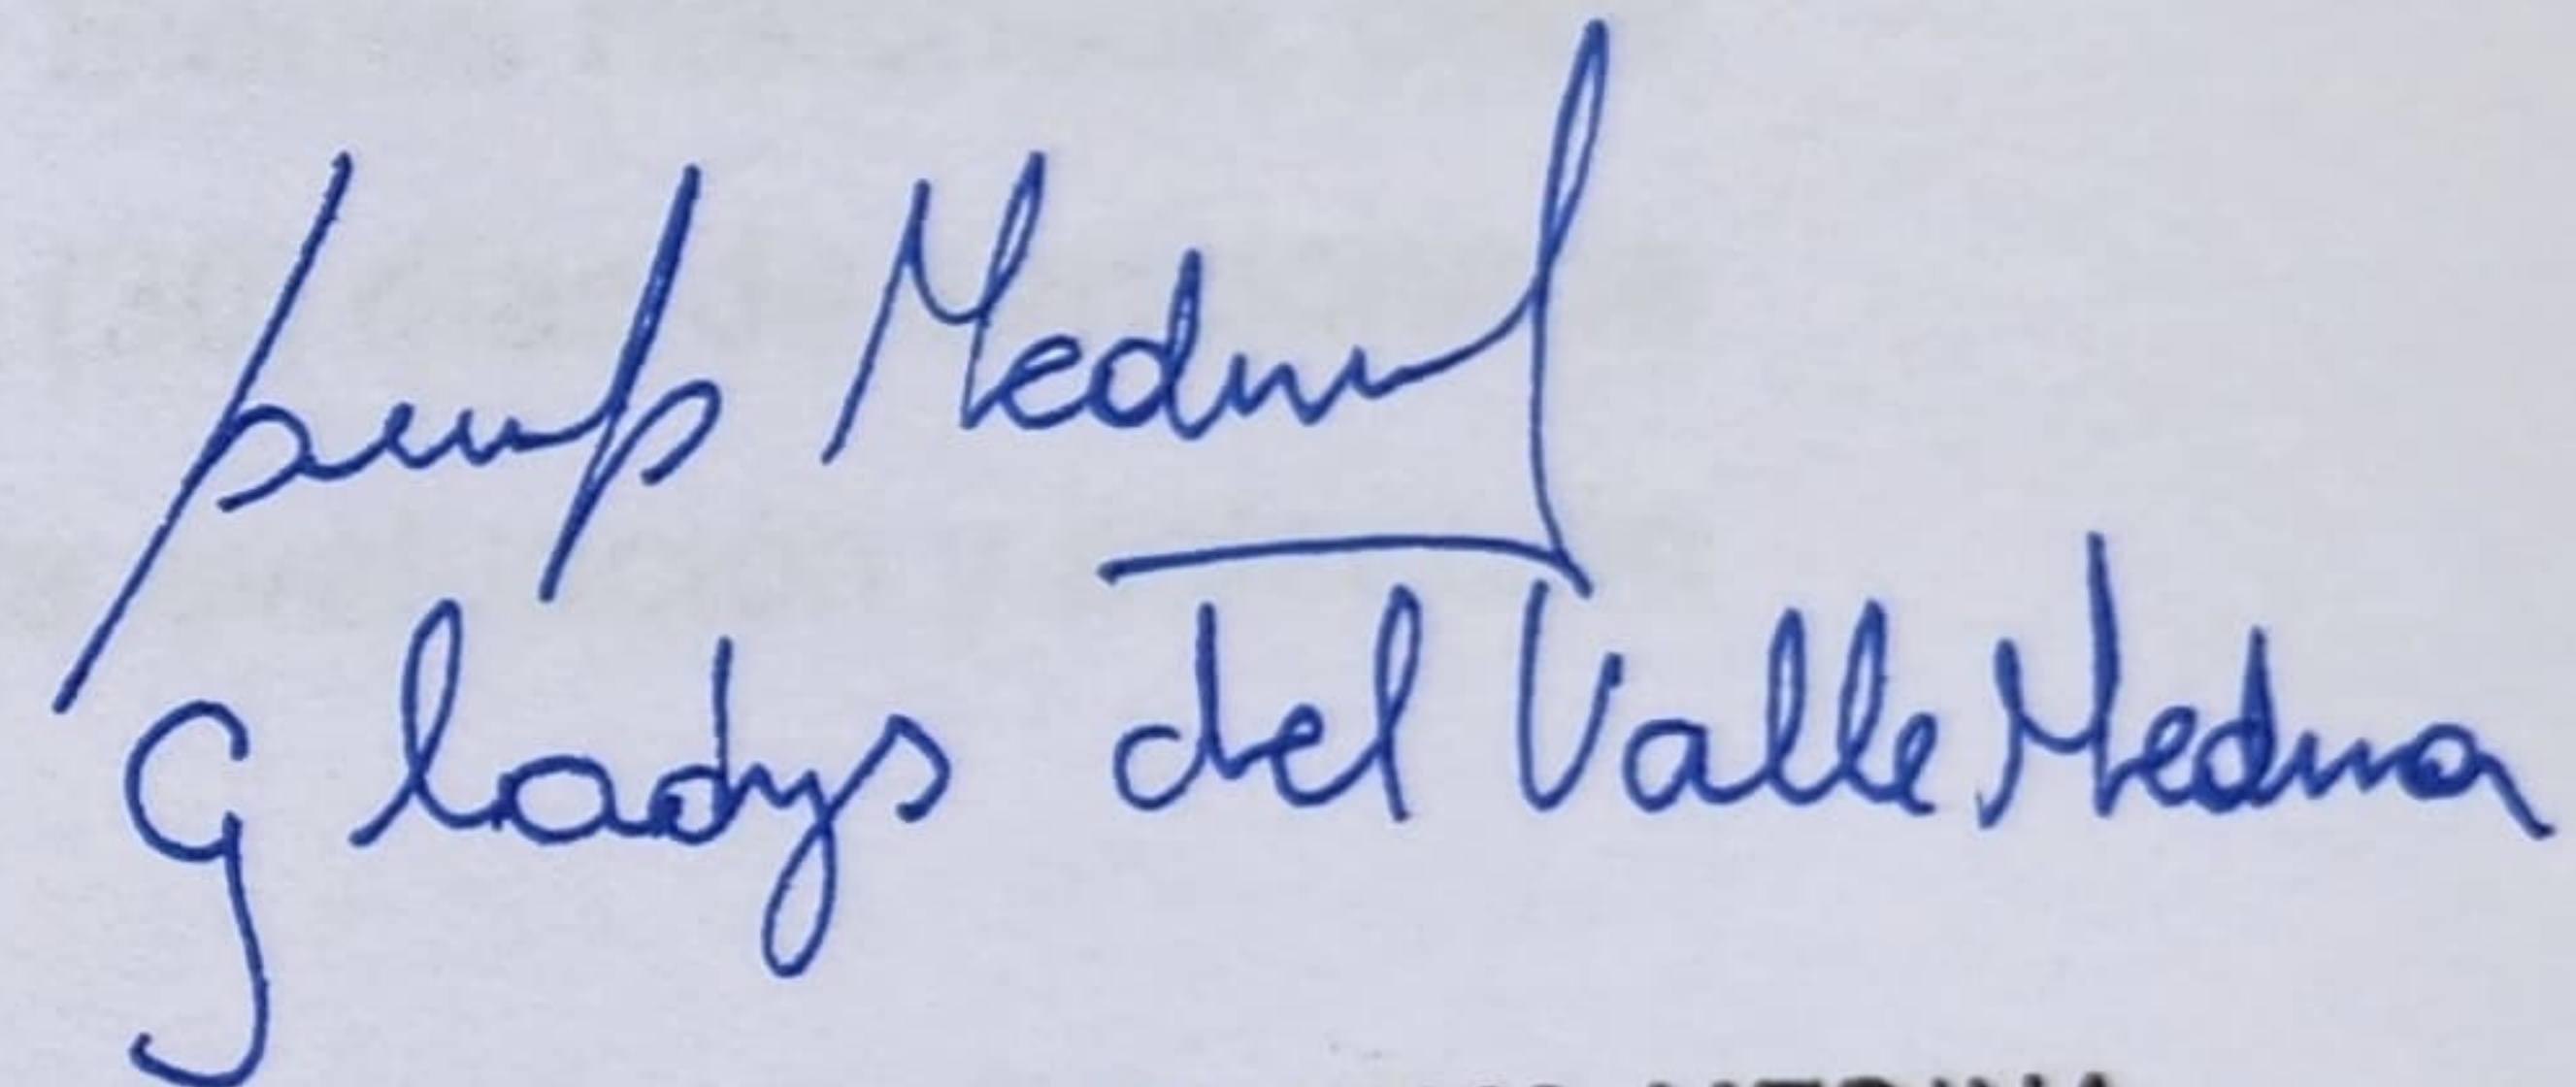 Medina
Gladys del Valle Medina